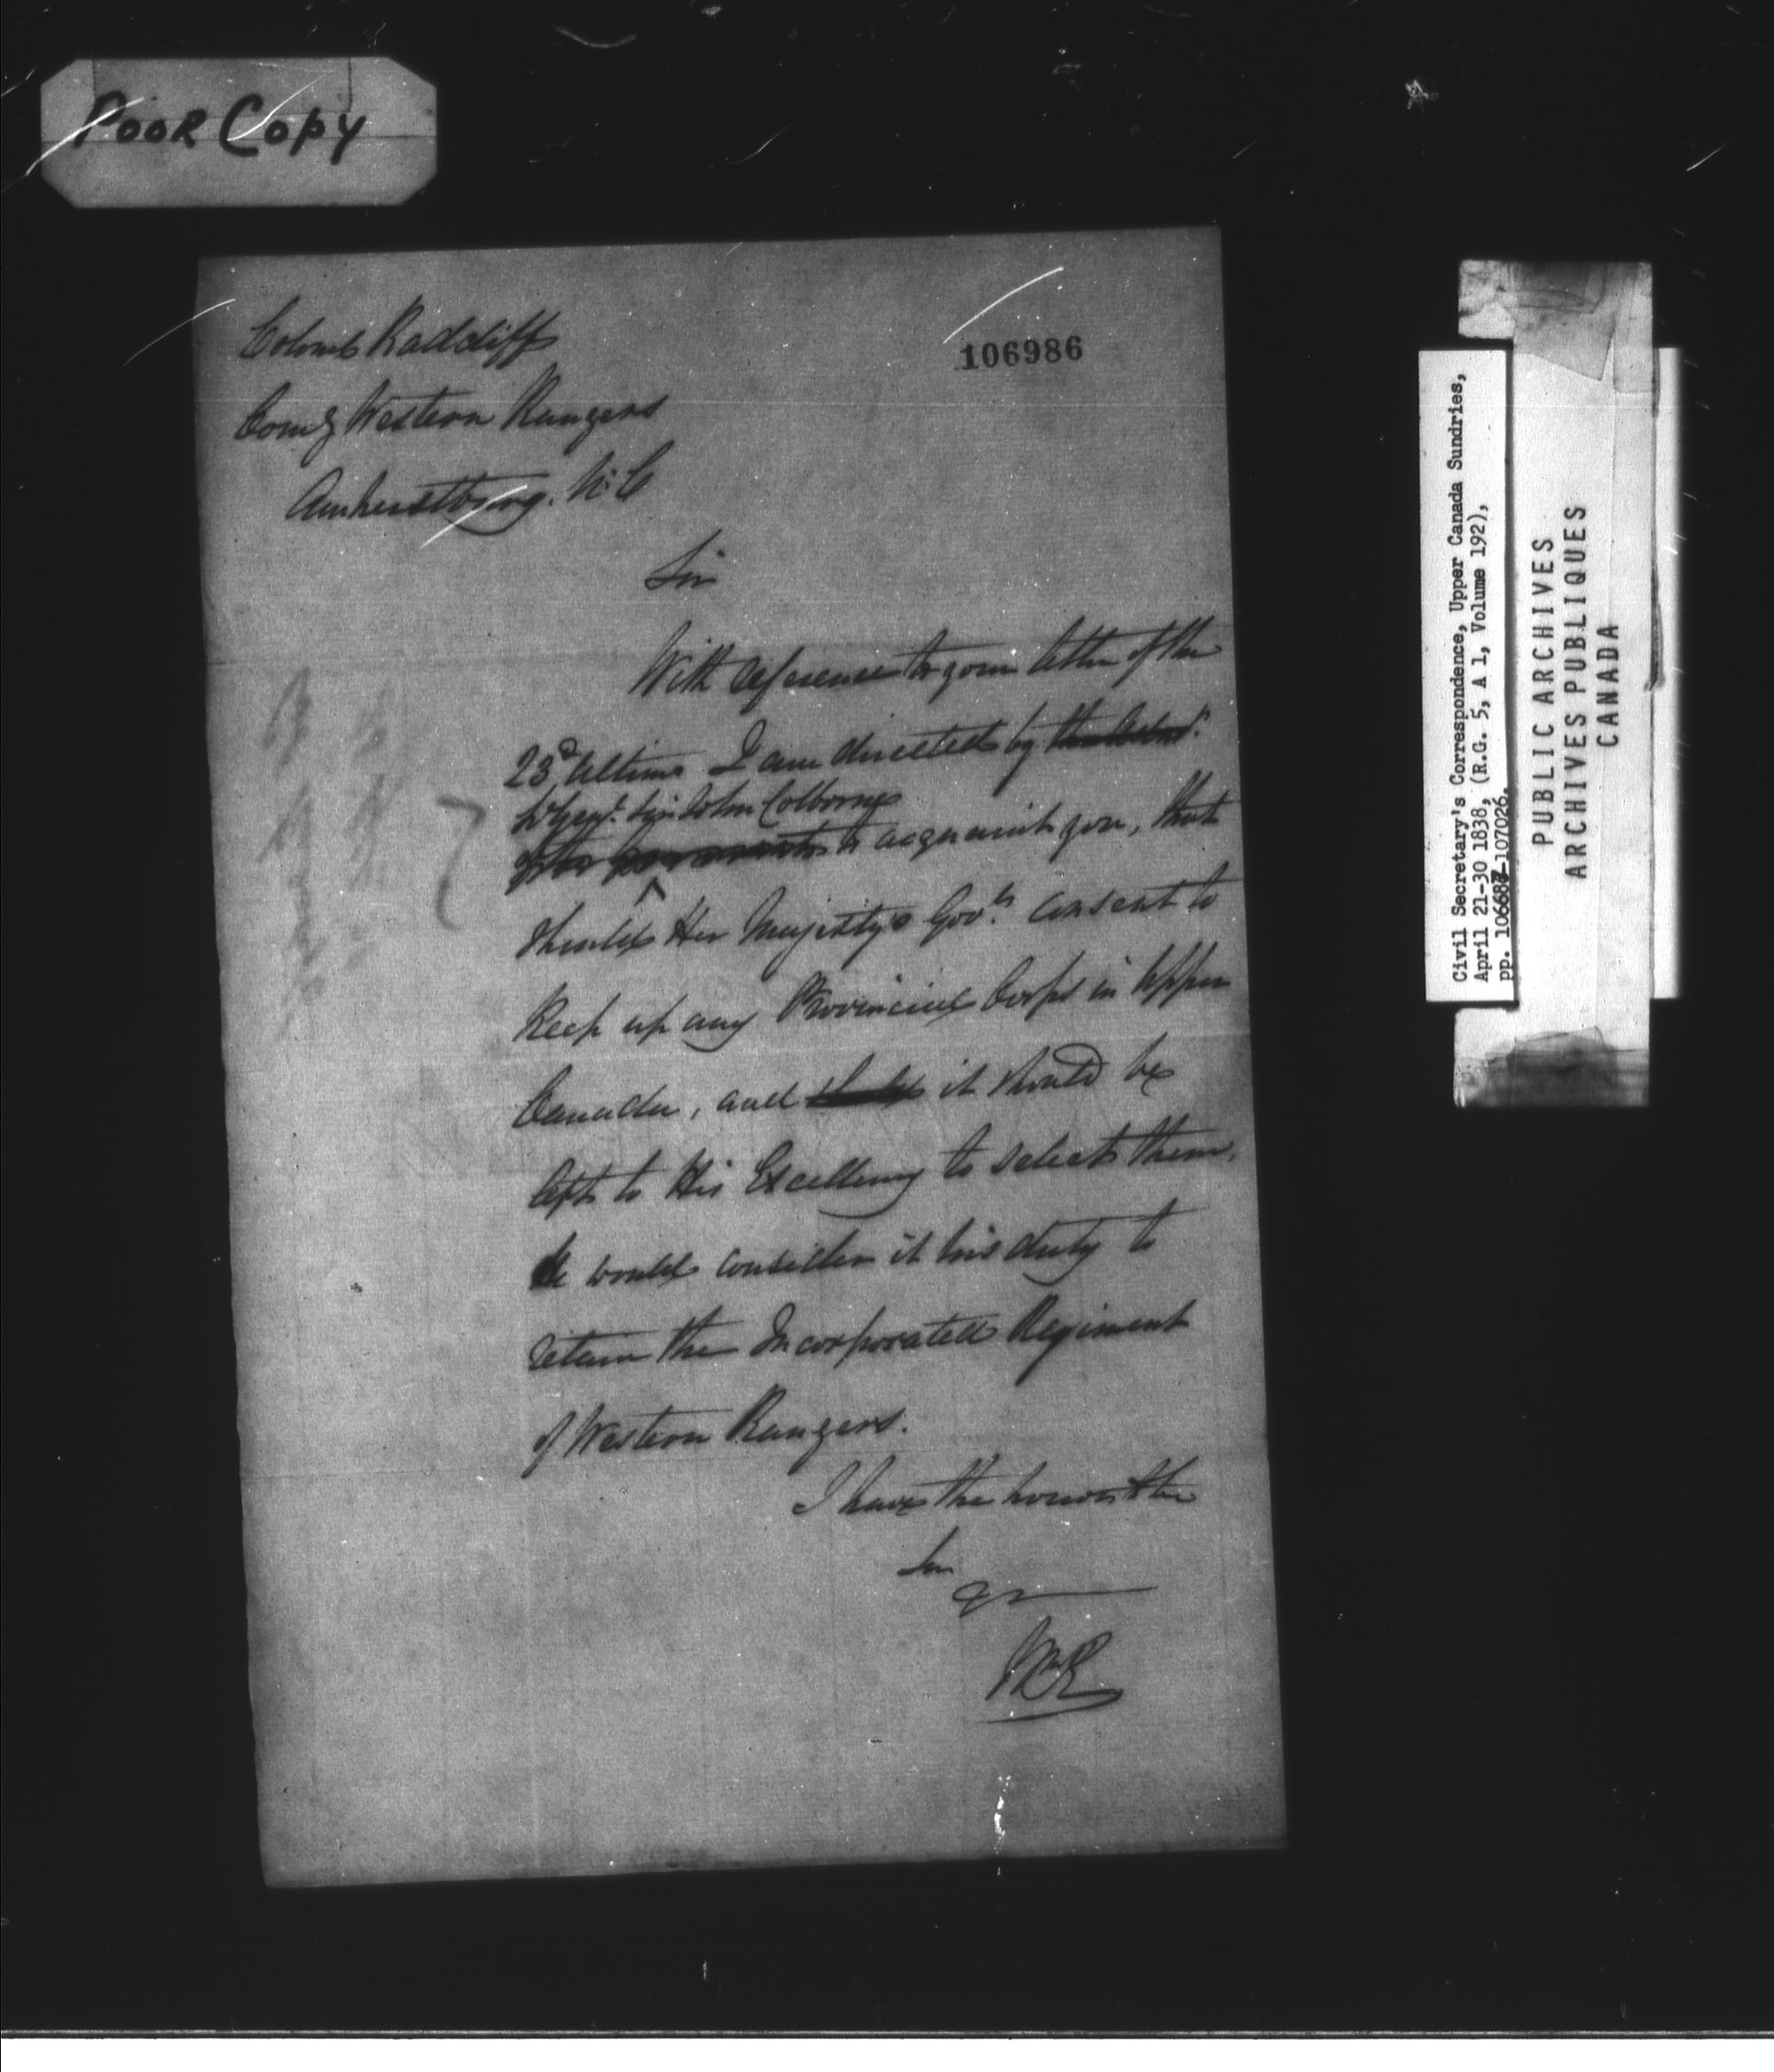 POOR COPY
106986
Colonel Radcliff
Comg Western Rangers
Amherstburg. U.C
Sir
With reference to your letter of the
23d Ultimo I am directed by
Lt Genl. Sir John Colborne
to acquaint you, that
should Her Majesty's Govt. consent to
keep up any Provincial Corps in Upper
Canada, and should it should be
left to His Excellency to select them,
He would consider it his duty to
retain the Incorporated Regiment
of Western Rangers.
I have the honor to be
Sir
Civil Secretary's Correspondence, Upper Canada Sundries,
April 21-30 1838, (R.G. 5, A 1, Volume 192),
pp. 106687-107026.
PUBLIC ARCHIVES
ARCHIVES PUBLIQUES
CANADA